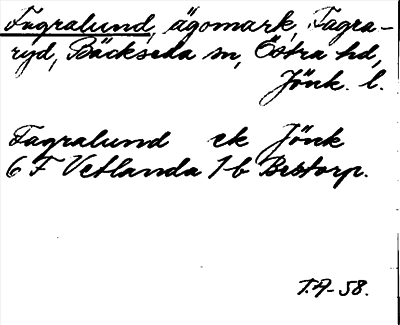 Fagralund, ägomark, Fagra-
ryd, Bäckseda sn, Östra hd,
Jönk. l.
Fagralund ek Jönk
6 F Vetlanda 1-b Bestorp.
T.A-58.